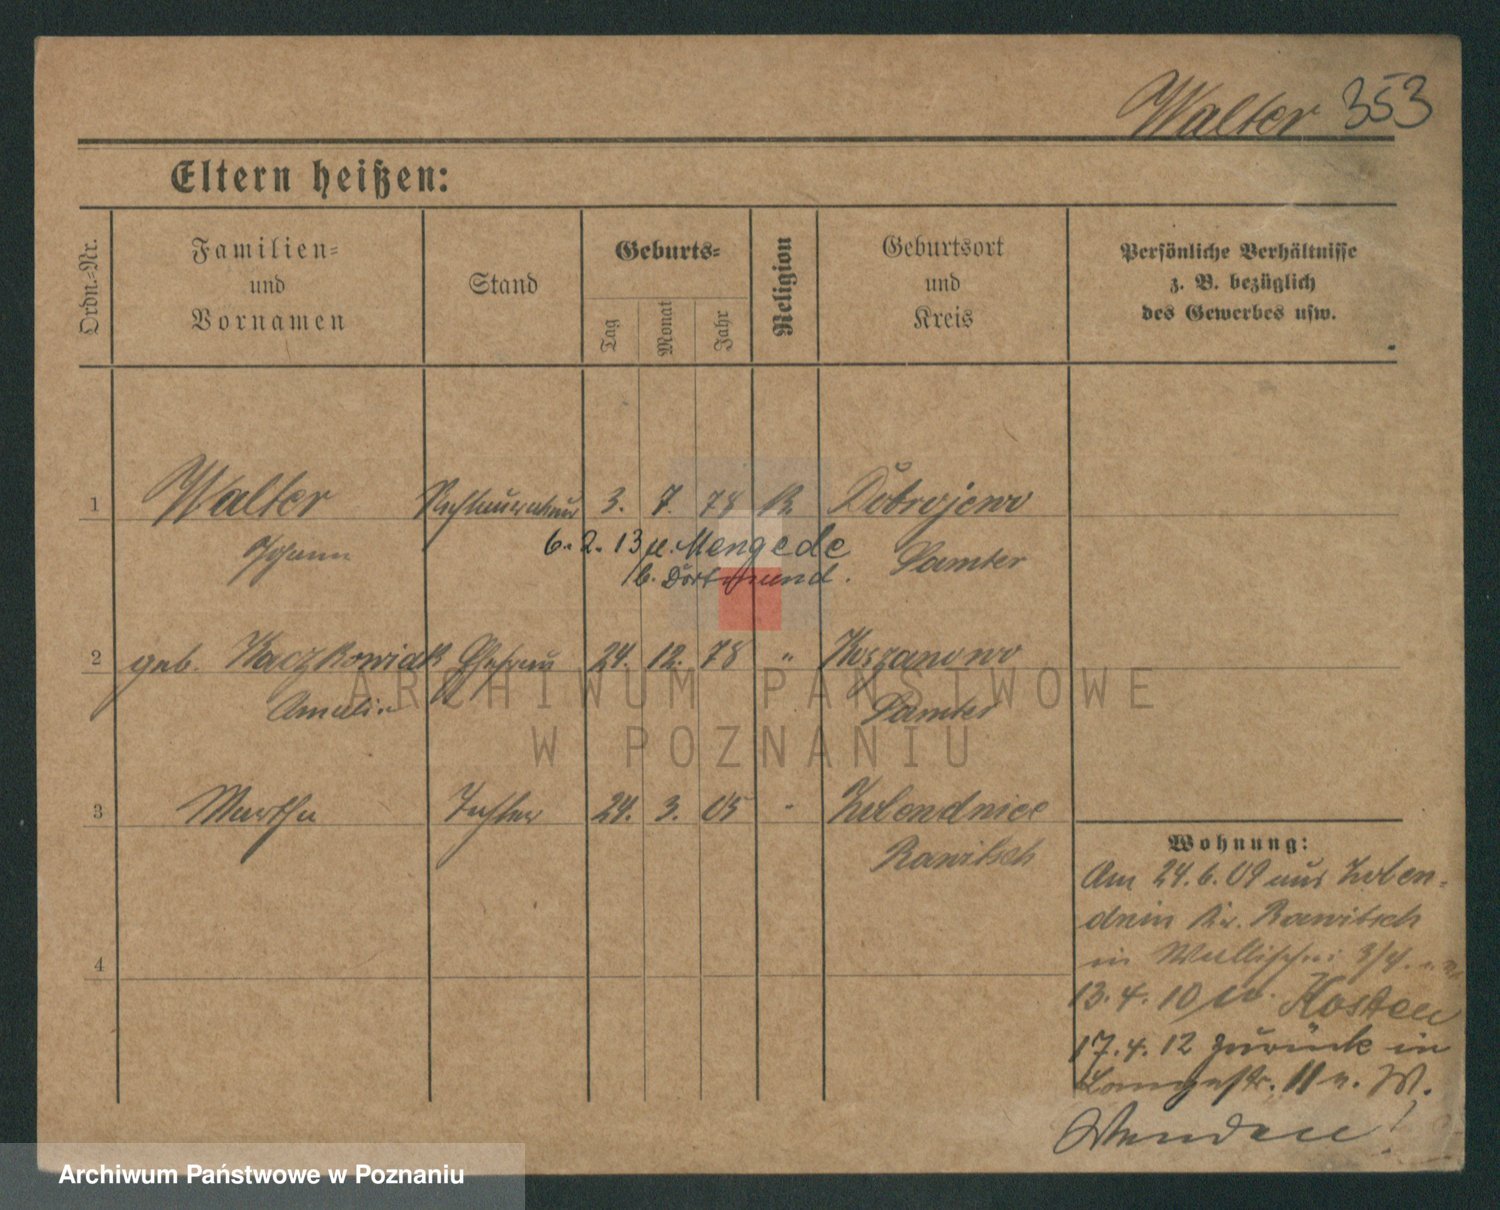 Walter 353
Eltern heißen:
Ordn.-Nr.
Familien-
und
Vornamen
Stand
Geburts-
Tag
Monat
Jahr
Religion
Geburtsort
und
Kreis
Persönliche Verhältnisse
z. B. bezüglich
des Gewerbes usw.
1 Walter Restaurateur 3. 7. 78 k Dobrojewo
Johann Samter
6. 2. 13 n. Mengede
b. Dortmund.
2 geb. Kaczkowiak Ehefrau 24. 12. 78 " Koszanowo
Amalie Samter
3 Martha Tochter 24. 3. 05 " Zolendnice
Rawitsch
4
Wohnung:
Am 24.6.09 aus Zolen-
dnin Kr. Rawitsch
in Wallischei 3/4.
13.4.10 Kosten
17.4.12 zurück in
Langestr. 11 W.
Wenden!
ARCHIWUM PAŃSTWOWE
W POZNANIU
Archiwum Państwowe w Poznaniu